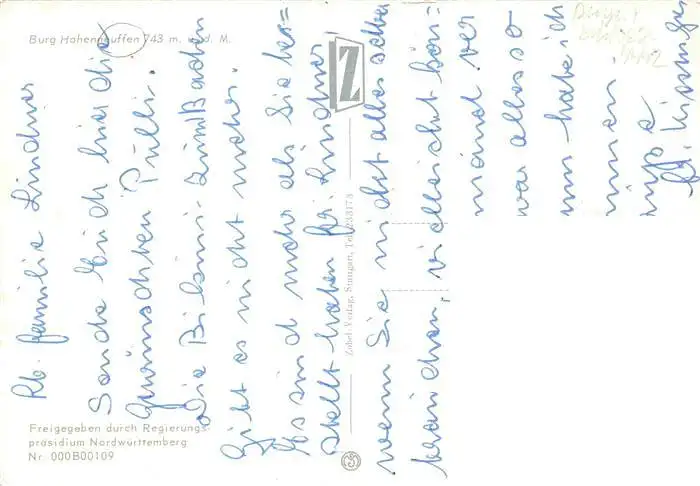 Burg Hohenstauffen 743 m. ü. d. M.
Freigegeben durch Regierungs-
präsidium Nordwürttemberg
Nr. 000B00109
Zobel-Verlag, Stuttgart, Tel. 233173
Z
Lb. Familie Lindner
Sende Euch hier die
gewünschten Pulli.
Die Bikini zum Baden
gibt es nicht mehr.
Es sind mehr als Sie bes=
tellt haben Fr. Lindner,
wenn Sie nicht alles selber
brauchen, vielleicht kön=
nimand ver
war alles so
nun habe ich
Fr.